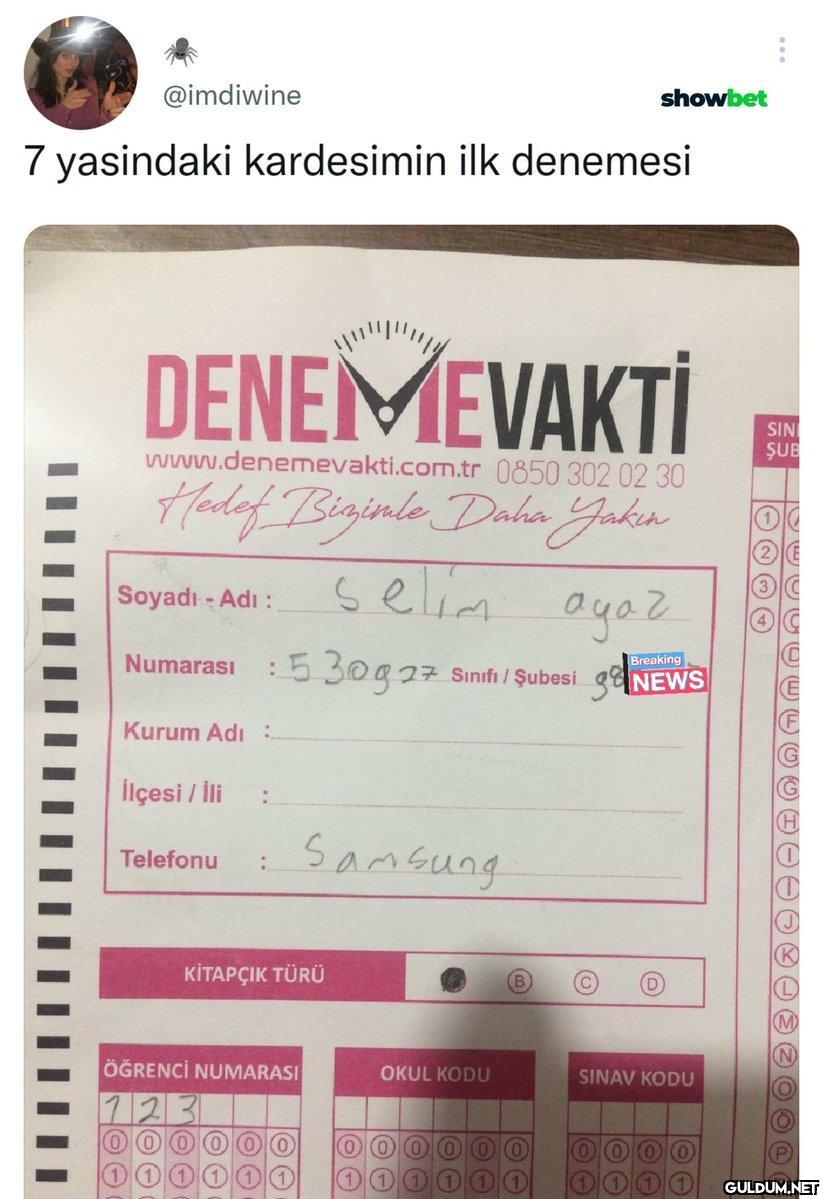 @imdiwine
showbet
7 yasindaki kardesimin ilk denemesi
DENEMEVAKTİ
www.denemevakti.com.tr 0850 302 02 30
Hedef Bizimle Daha Yakın
SINI
ŞUB
Soyadı - Adı : Selim ayaz
Numarası : 530927 Sınıfı / Şubesi 98
Breaking
NEWS
Kurum Adı :
İlçesi / İli :
Telefonu : Samsung
KİTAPÇIK TÜRÜ B C D
ÖĞRENCİ NUMARASI OKUL KODU SINAV KODU
123
0 0 0 0 0 0 0 0 0 0 0 0 0 0 0 0
1 1 1 1 1 1 1 1 1 1 1 1 1 1 1 1
1
2
3
4
Ç
D
E
F
G
Ğ
H
I
İ
J
K
L
M
N
O
Ö
P
GULDUM.NET